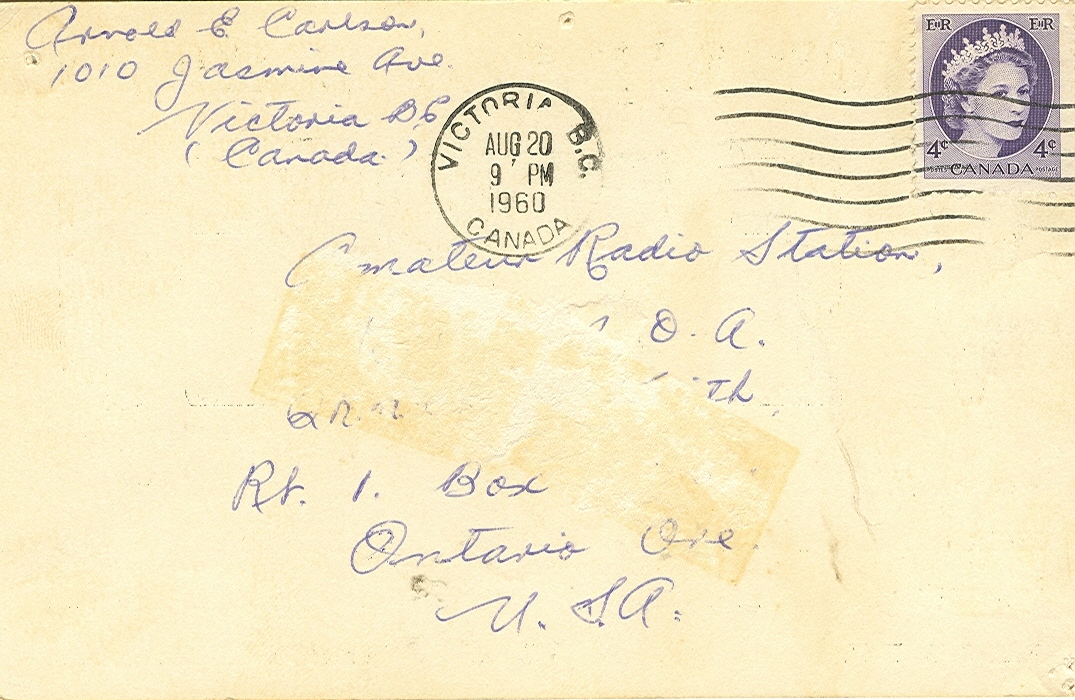 Arnold E Carlson,
1010 Jasmine Ave.
Victoria B.C
(Canada.)
VICTORIA B.C.
AUG 20
9 PM
1960
CANADA
EIIR EIIR
4¢ 4¢
POSTAGE CANADA POSTAGE
Amateur Radio Station,
O. A.
th,
Rt. 1. Box
Ontario Ore.
U. S. A.